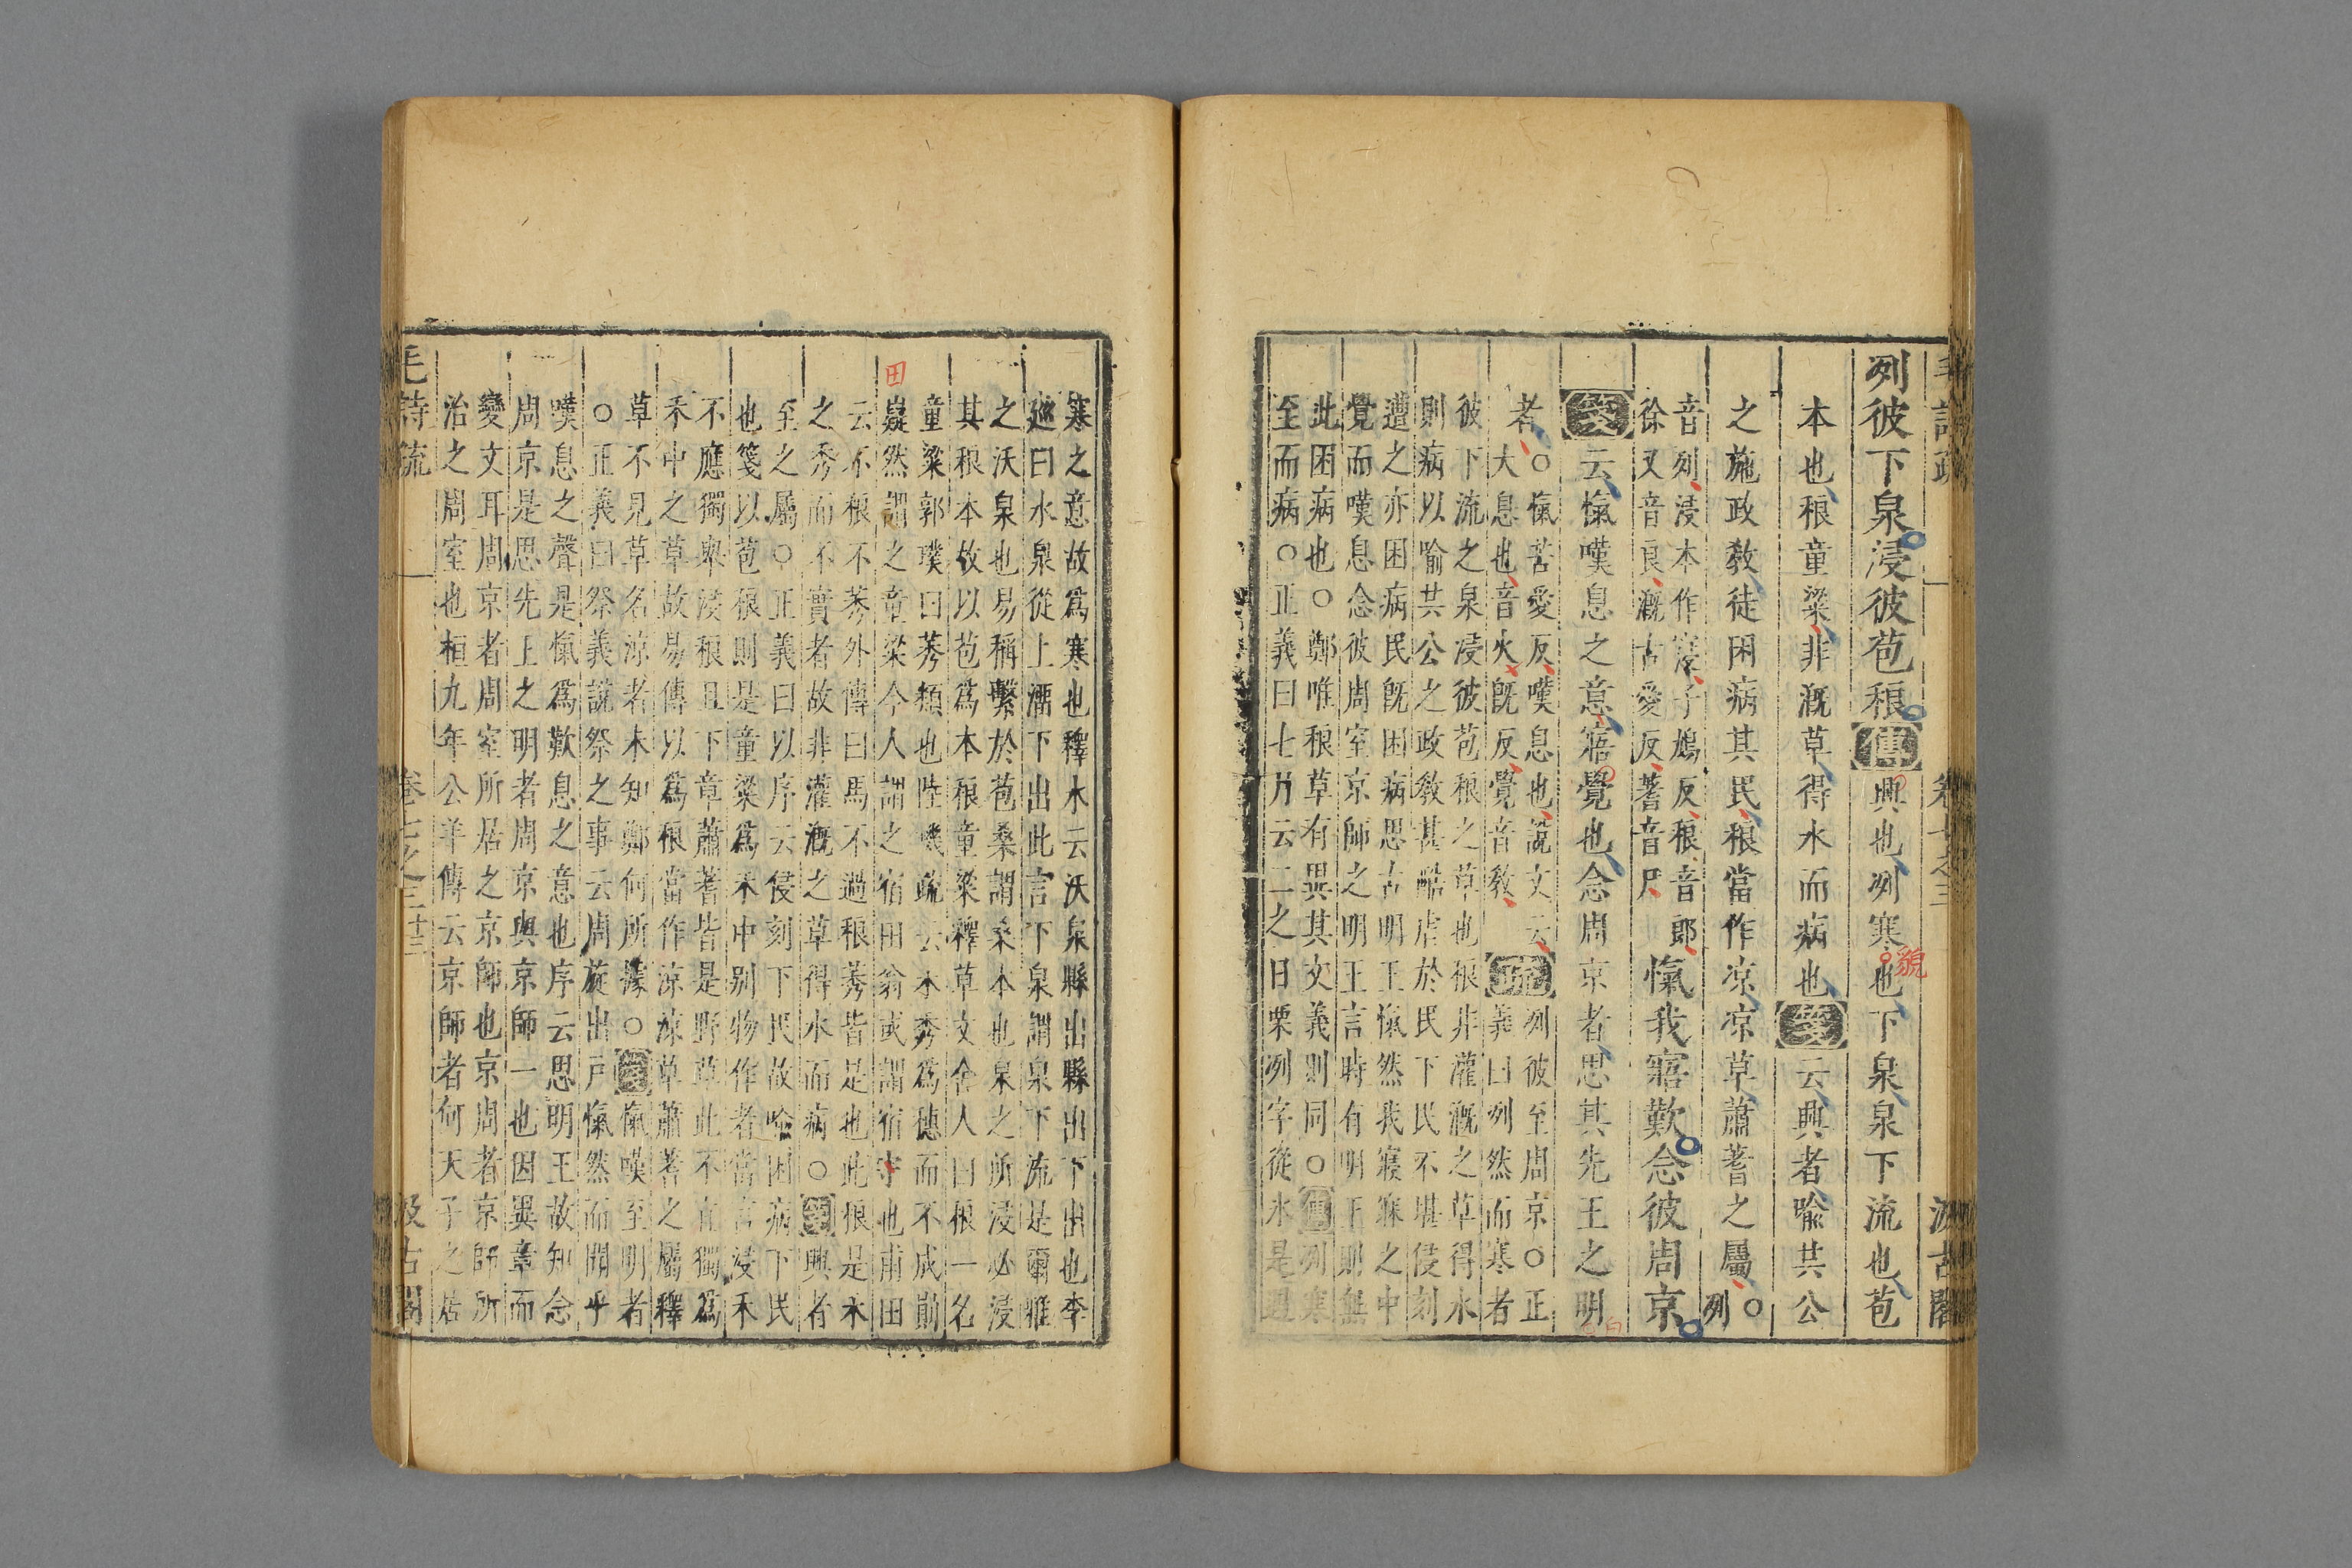 毛詩疏 卷七之三 汲古閣
洌彼下泉浸彼苞稂傳興也洌寒也下泉泉下流也苞
貌
本也稂童粱非漑草得水而病也箋云興者喻共公
之施政敎徒困病其民稂當作凉凉草蕭蓍之屬○洌
音列浸本作寖子鴆反稂音郎
徐又音良漑古愛反蓍音尸
愾我寤歎念彼周京
箋云愾嘆息之意寤覺也念周京者思其先王之明
者○愾苦愛反嘆息也說文云
大息也音火旣反覺音敎
疏洌彼至周京○正
義曰洌然而寒者
彼下流之泉浸彼苞稂之草也稂非灌漑之草得水
則病以喻共公之政敎甚酷虐於民下民不堪侵刻
遭之亦困病民旣困病思古明王愾然我寢寐之中
覺而嘆息念彼周室京師之明王言時有明王則無
此困病也○鄭唯稂草有異其文義則同○傳洌寒
至而病○正義曰七月云二之日栗洌字從水是遇
寒之意故爲寒也釋水云沃泉縣出縣出下出也李
巡曰水泉從上溜下出此言下泉謂泉下流是爾雅
之沃泉也易稱繫於苞桑謂桑本也泉之所浸必浸
其稂本故以苞爲本稂童粱釋草文舍人曰稂一名
童粱郭璞曰莠類也陸璣疏云禾秀爲穗而不成崱
田
嶷然謂之童粱今人謂之宿田翁或謂宿守也甫田
云不稂不莠外傳曰馬不過稂莠皆是也此稂是禾
之秀而不實者故非灌漑之草得水而病○箋興者
至之屬○正義曰以序云侵刻下民故喻困病下民
也箋以苞稂則是童粱爲禾中別物作者當言浸禾
不應獨舉浸稂且下章蕭蓍皆是野草此不宜獨爲
禾中之草故易傳以爲稂當作涼涼草蕭蓍之屬釋
草不見草名涼者未知鄭何所據○箋愾嘆至明者
○正義曰祭義說祭之事云周旋出戶愾然而聞乎
嘆息之聲是愾爲歎息之意也序云思明王故知念
周京是思先上之明者周京與京師一也因異章而
變文耳周京者周室所居之京師也京周者京師所
治之周室也桓九年公羊傳云京師者何天子之居
毛詩疏 卷七之三 十三 汲古閣